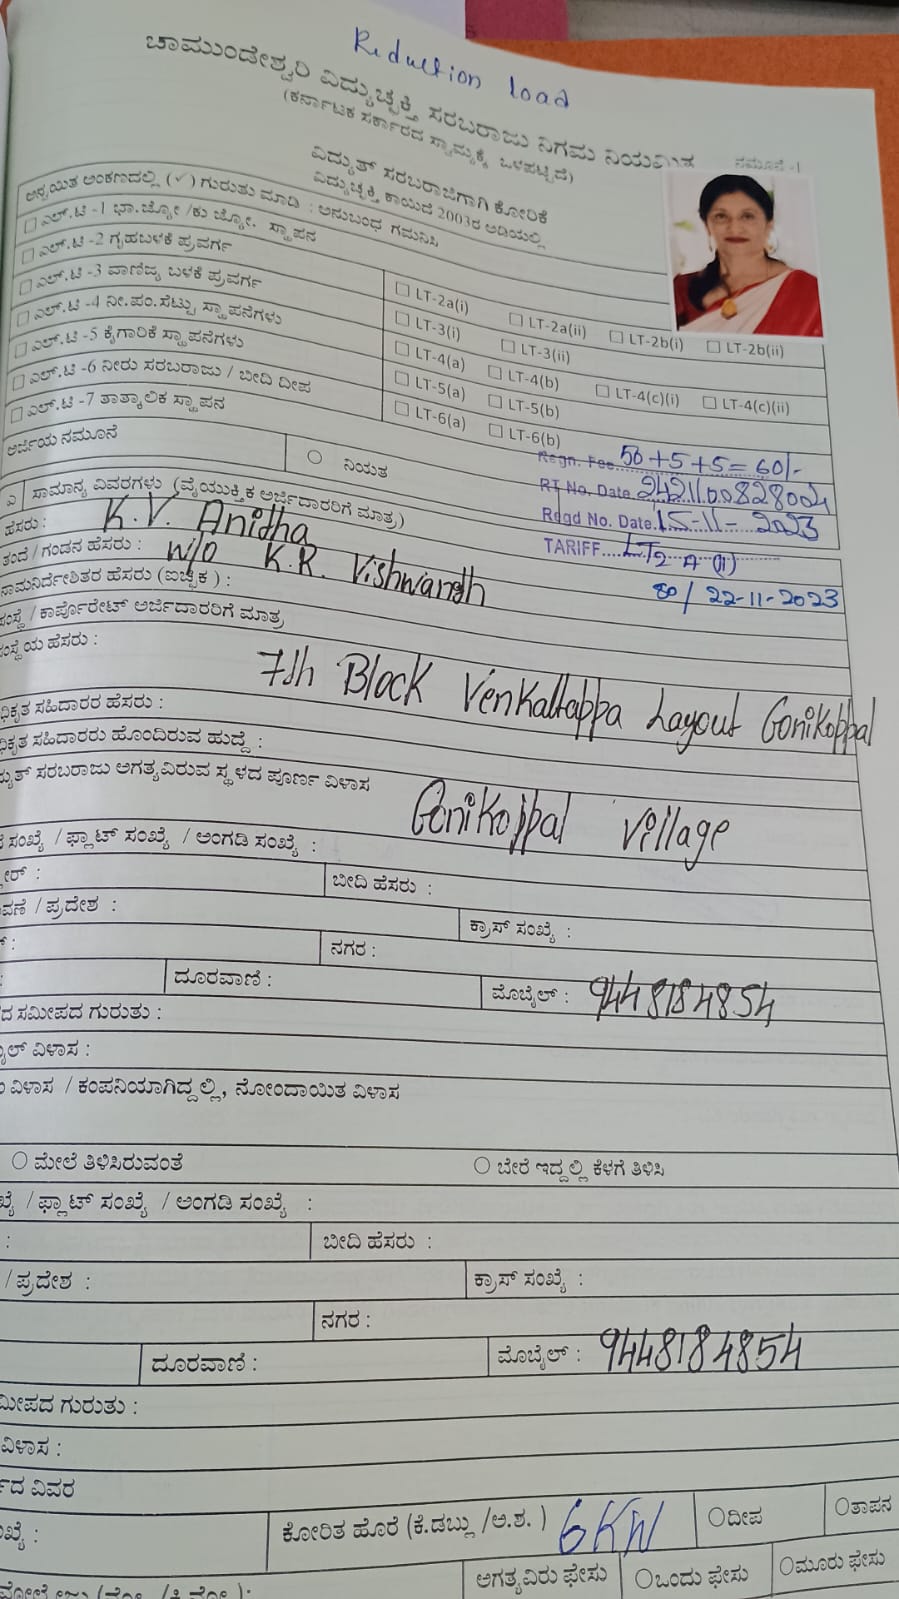 Reduction load
ಚಾಮುಂಡೇಶ್ವರಿ ವಿದ್ಯುಚ್ಛಕ್ತಿ ಸರಬರಾಜು ನಿಗಮ ನಿಯಮಿತ
(ಕರ್ನಾಟಕ ಸರ್ಕಾರದ ಸ್ವಾಮ್ಯಕ್ಕೆ ಒಳಪಟ್ಟಿದೆ)
ನಮೂನೆ -1
ವಿದ್ಯುತ್ ಸರಬರಾಜಿಗಾಗಿ ಕೋರಿಕೆ
ವಿದ್ಯುಚ್ಛಕ್ತಿ ಕಾಯಿದೆ 2003ರ ಅಡಿಯಲ್ಲಿ
ಅನ್ವಯಿತ ಅಂಕಣದಲ್ಲಿ (✓) ಗುರುತು ಮಾಡಿ : ಅನುಬಂಧ ಗಮನಿಸಿ
☐ ಎಲ್.ಟಿ -1 ಭಾ.ಜ್ಯೋ /ಕು ಜ್ಯೋ. ಸ್ಥಾಪನ
☐ ಎಲ್.ಟಿ -2 ಗೃಹಬಳಕೆ ಪ್ರವರ್ಗ ☐ LT-2a(i) ☐ LT-2a(ii) ☐ LT-2b(i) ☐ LT-2b(ii)
☐ ಎಲ್.ಟಿ -3 ವಾಣಿಜ್ಯ ಬಳಕೆ ಪ್ರವರ್ಗ ☐ LT-3(i) ☐ LT-3(ii)
☐ ಎಲ್.ಟಿ -4 ನೀ.ಪಂ.ಸೆಟ್ಟು ಸ್ಥಾಪನೆಗಳು ☐ LT-4(a) ☐ LT-4(b) ☐ LT-4(c)(i) ☐ LT-4(c)(ii)
☐ ಎಲ್.ಟಿ -5 ಕೈಗಾರಿಕೆ ಸ್ಥಾಪನೆಗಳು ☐ LT-5(a) ☐ LT-5(b)
☐ ಎಲ್.ಟಿ -6 ನೀರು ಸರಬರಾಜು / ಬೀದಿ ದೀಪ ☐ LT-6(a) ☐ LT-6(b)
☐ ಎಲ್.ಟಿ -7 ತಾತ್ಕಾಲಿಕ ಸ್ಥಾಪನ
ಅರ್ಜಿಯ ನಮೂನೆ ○ ನಿಯತ
Regn. Fee 50+5+5=60/-
RT No. Date 242110082800
Regd No. Date. 15-11-2023
TARIFF....LT2 A (ii)
80/22-11-2023
ಎ ಸಾಮಾನ್ಯ ವಿವರಗಳು (ವೈಯುಕ್ತಿಕ ಅರ್ಜಿದಾರರಿಗೆ ಮಾತ್ರ)
ಹೆಸರು : K.V. Anitha
ತಂದೆ / ಗಂಡನ ಹೆಸರು : W/o K.R. Vishwanath
ನಾಮನಿರ್ದೇಶಿತರ ಹೆಸರು (ಐಚ್ಛಿಕ ) :
ಸಂಸ್ಥೆ / ಕಾರ್ಪೊರೇಟ್ ಅರ್ಜಿದಾರರಿಗೆ ಮಾತ್ರ
ಸಂಸ್ಥೆಯ ಹೆಸರು :
7th Block Venkattappa Layout Gonikoppal
ಧಿಕೃತ ಸಹಿದಾರರ ಹೆಸರು :
ಧಿಕೃತ ಸಹಿದಾರರು ಹೊಂದಿರುವ ಹುದ್ದೆ :
ದ್ಯುತ್ ಸರಬರಾಜು ಅಗತ್ಯವಿರುವ ಸ್ಥಳದ ಪೂರ್ಣ ವಿಳಾಸ
Gonikoppal Village
ಸಂಖ್ಯೆ / ಫ್ಲಾಟ್ ಸಂಖ್ಯೆ / ಅಂಗಡಿ ಸಂಖ್ಯೆ :
ಬೀದಿ ಹೆಸರು :
ವಣೆ / ಪ್ರದೇಶ : ಕ್ರಾಸ್ ಸಂಖ್ಯೆ :
ನಗರ :
ದೂರವಾಣಿ : ಮೊಬೈಲ್ : 9448184854
ದ ಸಮೀಪದ ಗುರುತು :
ೈಲ್ ವಿಳಾಸ :
ವಿಳಾಸ / ಕಂಪನಿಯಾಗಿದ್ದಲ್ಲಿ, ನೋಂದಾಯಿತ ವಿಳಾಸ
○ ಮೇಲೆ ತಿಳಿಸಿರುವಂತೆ ○ ಬೇರೆ ಇದ್ದಲ್ಲಿ ಕೆಳಗೆ ತಿಳಿಸಿ
ಖ್ಯೆ / ಫ್ಲಾಟ್ ಸಂಖ್ಯೆ / ಅಂಗಡಿ ಸಂಖ್ಯೆ :
: ಬೀದಿ ಹೆಸರು :
/ ಪ್ರದೇಶ : ಕ್ರಾಸ್ ಸಂಖ್ಯೆ :
ನಗರ :
ದೂರವಾಣಿ : ಮೊಬೈಲ್ : 9448184854
ಮೀಪದ ಗುರುತು :
ವಿಳಾಸ :
ದ ವಿವರ
ಖ್ಯೆ : ಕೋರಿತ ಹೊರೆ (ಕಿ.ಡಬ್ಲು /ಅ.ಶ. ) 6KW ○ದೀಪ ○ತಾಪನ
ಅಗತ್ಯವಿರು ಫೇಸು ○ಒಂದು ಫೇಸು ○ಮೂರು ಫೇಸು